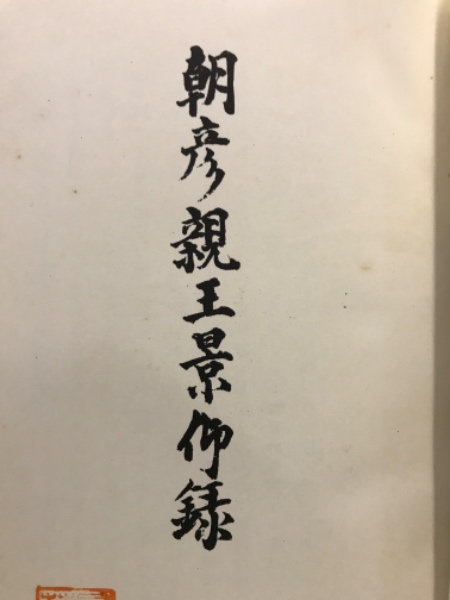 朝彦親王景仰録